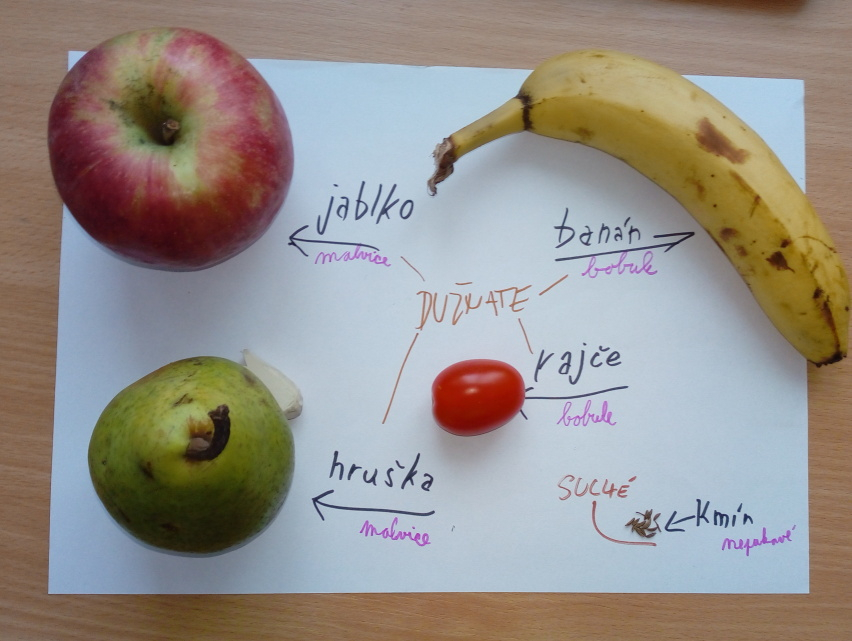 jablko
malvice
banán
bobule
DUŽNATÉ
rajče
bobule
hruška
malvice
SUCHÉ
kmín
nepukavé